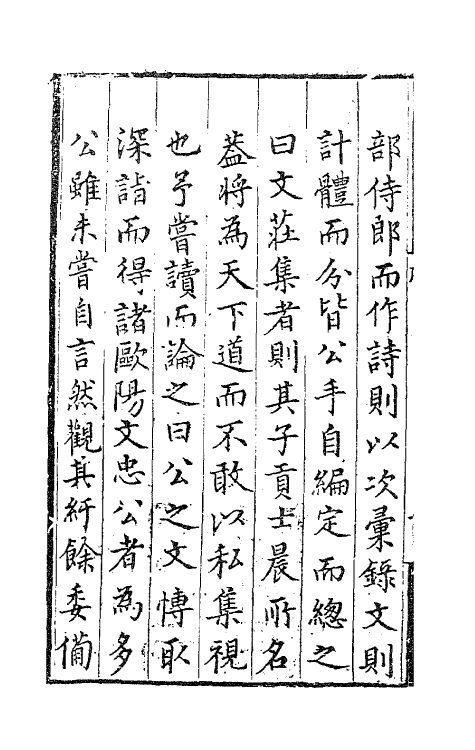 部侍郎而作詩則以次彙錄文則
計體而分皆公手自編定而總之
曰文莊集者則其子貢士晨所名
葢將為天下道而不敢以私集視
也予嘗讀而論之曰公之文博取
深詣而得諸歐陽文忠公者為多
公雖未嘗自言然觀其紆餘委備